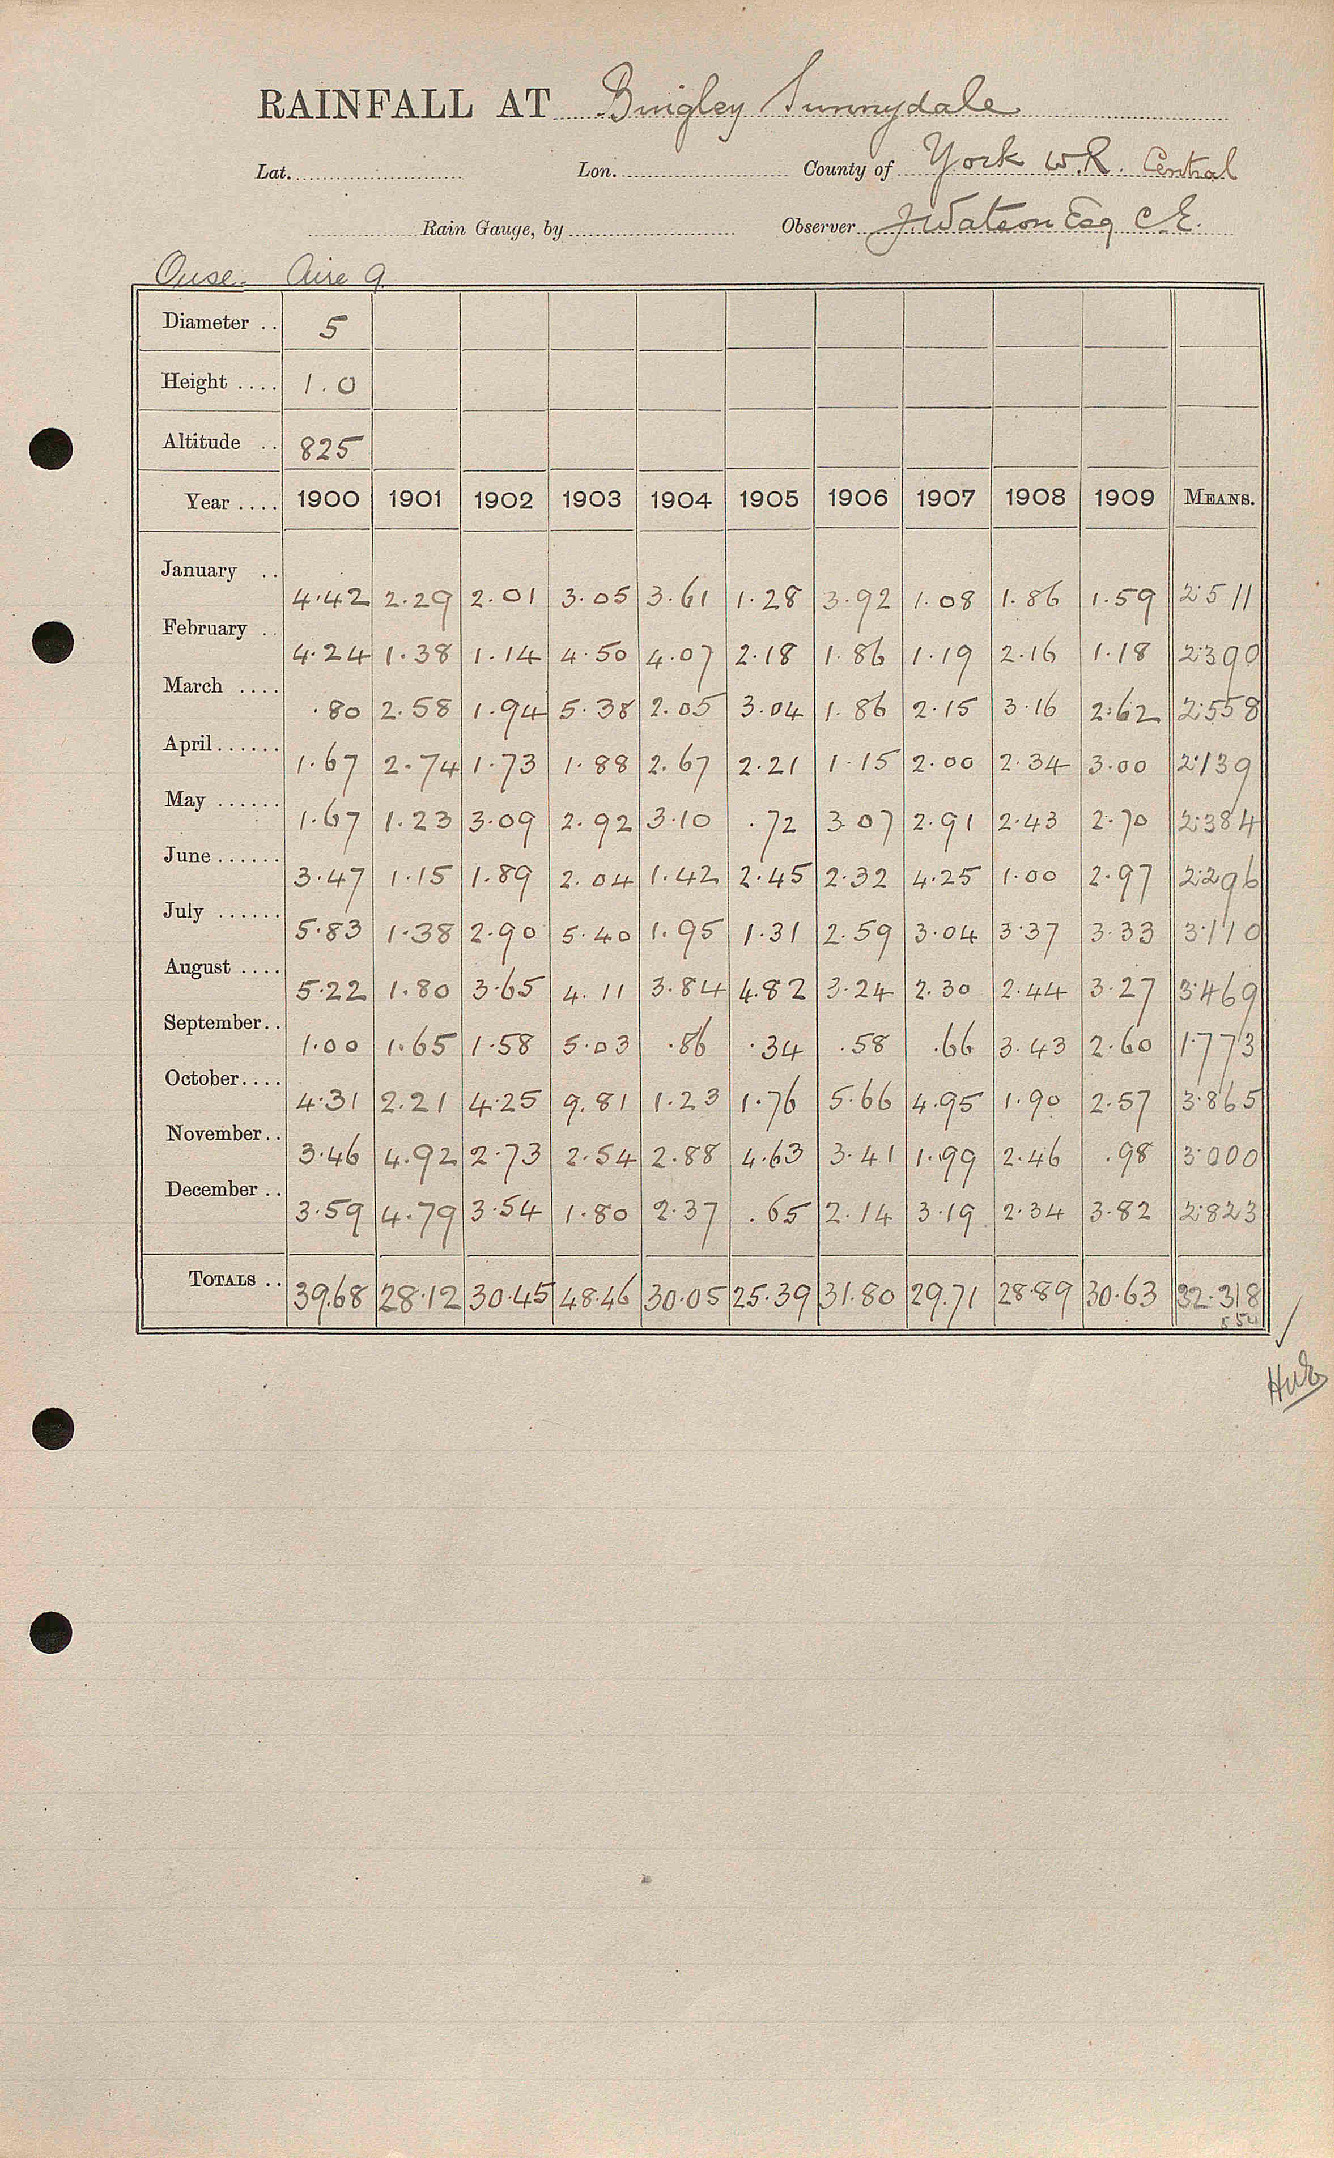 RAINFALL AT Bingley Sunnydale
Lat. Lon. County of York W.R. Central
Rain Gauge, by Observer J. Watson Esq C.E.
Ouse. Aire 9.
Diameter .. 5
Height .... 1.0
Altitude .. 825
Year .... 1900 1901 1902 1903 1904 1905 1906 1907 1908 1909 MEANS.
January .. 4.42 2.29 2.01 3.05 3.61 1.28 3.92 1.08 1.86 1.59 2.511
February .. 4.24 1.38 1.14 4.50 4.07 2.18 1.86 1.19 2.16 1.18 2.390
March .... .80 2.58 1.94 5.38 2.05 3.04 1.86 2.15 3.16 2.62 2.558
April ...... 1.67 2.74 1.73 1.88 2.67 2.21 1.15 2.00 2.34 3.00 2.139
May ...... 1.67 1.23 3.09 2.92 3.10 .72 3.07 2.91 2.43 2.70 2.384
June ...... 3.47 1.15 1.89 2.04 1.42 2.45 2.32 4.25 1.00 2.97 2.296
July ...... 5.83 1.38 2.90 5.40 1.95 1.31 2.59 3.04 3.37 3.33 3.110
August .... 5.22 1.80 3.65 4.11 3.84 4.82 3.24 2.30 2.44 3.27 3.469
September .. 1.00 1.65 1.58 5.03 .86 .34 .58 .66 3.43 2.60 1.773
October .... 4.31 2.21 4.25 9.81 1.23 1.76 5.66 4.95 1.90 2.57 3.865
November .. 3.46 4.92 2.73 2.54 2.88 4.63 3.41 1.99 2.46 .98 3.000
December .. 3.59 4.79 3.54 1.80 2.37 .65 2.14 3.19 2.34 3.82 2.823
TOTALS .. 39.68 28.12 30.45 48.46 30.05 25.39 31.80 29.71 28.89 30.63 32.318